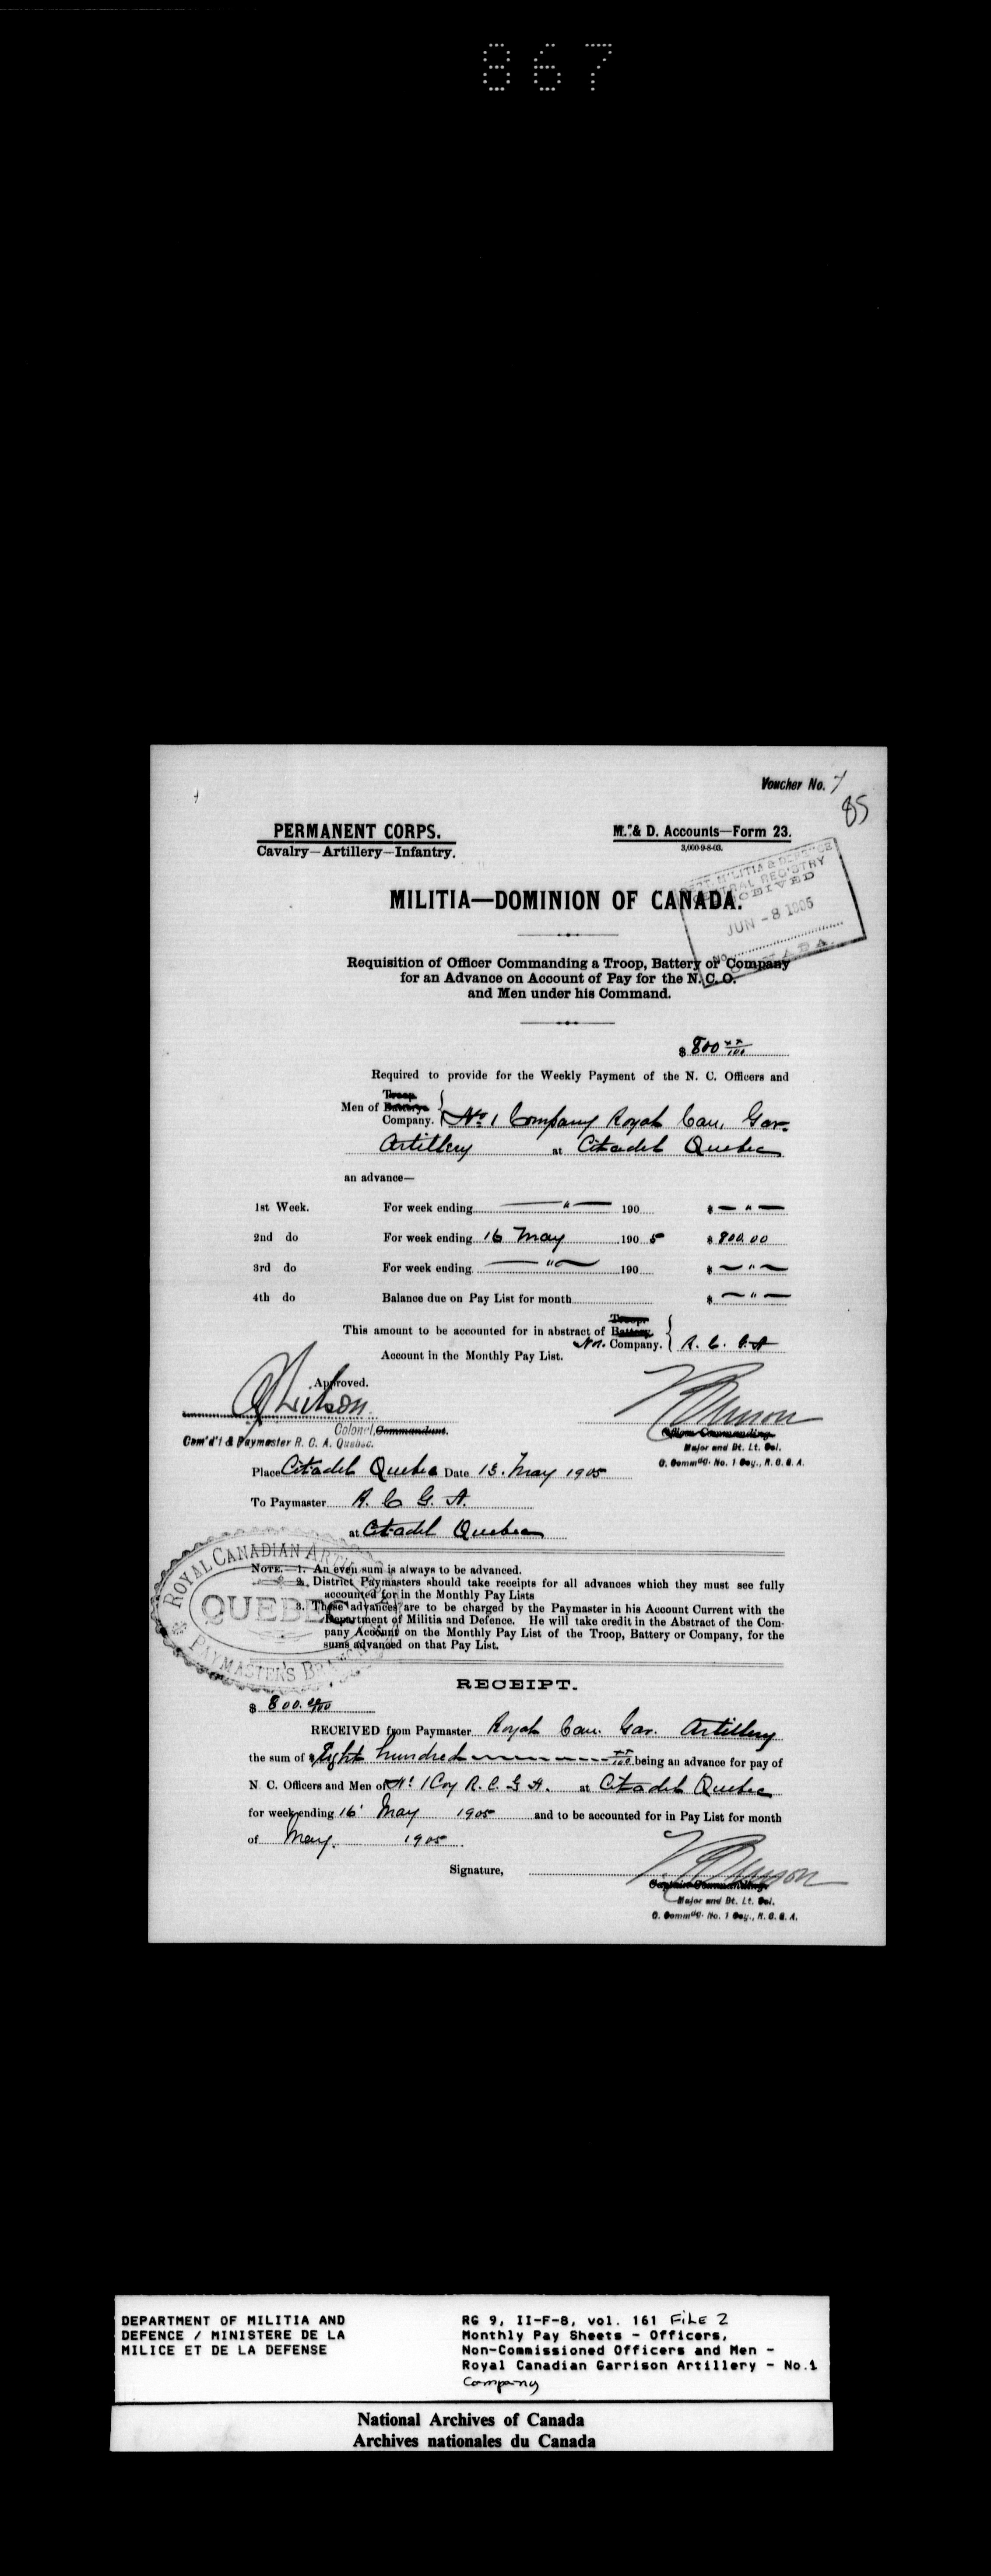 867
Voucher No. 7
85
PERMANENT CORPS.
Cavalry—Artillery—Infantry.
M. & D. Accounts—Form 23.
3,000-9-8-03.
DEPT. MILITIA & DEFENCE
CENTRAL REGISTRY
RECEIVED
JUN - 8 1905
No.
CANADA.
MILITIA—DOMINION OF CANADA.
Requisition of Officer Commanding a Troop, Battery or Company
for an Advance on Account of Pay for the N. C. O.
and Men under his Command.
$ 800 xx/100
Required to provide for the Weekly Payment of the N. C. Officers and
Troop
Men of Battery
Company. No. 1 Company Royal Can. Gar.
Artillery at Citadel Quebec
an advance—
1st Week. For week ending — " — 190 $ — " —
2nd do For week ending 16 May 190 5 $ 800.00
3rd do For week ending — " — 190 $ — " —
4th do Balance due on Pay List for month $ — " —
Troop
This amount to be accounted for in abstract of Battery
No 1. Company. R. C. G. A
Account in the Monthly Pay List.
Approved.
Colonel, Commandant.
Com'd't & Paymaster R. C. A. Quebec.
Officer Commanding
Major and Bt. Lt. Col.
O. Commdg. No. 1 Coy., R. C. G. A.
Place Citadel Quebec Date 15. May 1905
To Paymaster R. C. G. A.
at Citadel Quebec
ROYAL CANADIAN ARTILLERY
QUEBEC
PAYMASTER'S BRANCH
NOTE.—1. An even sum is always to be advanced.
2. District Paymasters should take receipts for all advances which they must see fully
accounted for in the Monthly Pay Lists
3. These advances are to be charged by the Paymaster in his Account Current with the
Department of Militia and Defence. He will take credit in the Abstract of the Com-
pany Account on the Monthly Pay List of the Troop, Battery or Company, for the
sums advanced on that Pay List.
RECEIPT.
$ 800.00/100
RECEIVED from Paymaster Royal Can. Gar. Artillery
the sum of $ Eight hundred xx/100 being an advance for pay of
N. C. Officers and Men of No 1 Coy R. C. G A. at Citadel Quebec
for week ending 16' May 1905 and to be accounted for in Pay List for month
of May. 1905
Signature,
Captain Commanding.
Major and Bt. Lt. Col.
O. Commdg. No. 1 Coy., R. C. G. A.
DEPARTMENT OF MILITIA AND
DEFENCE / MINISTERE DE LA
MILICE ET DE LA DEFENSE
RG 9, II-F-8, vol. 161 FILE 2
Monthly Pay Sheets - Officers,
Non-Commissioned Officers and Men -
Royal Canadian Garrison Artillery - No.1
Company
National Archives of Canada
Archives nationales du Canada